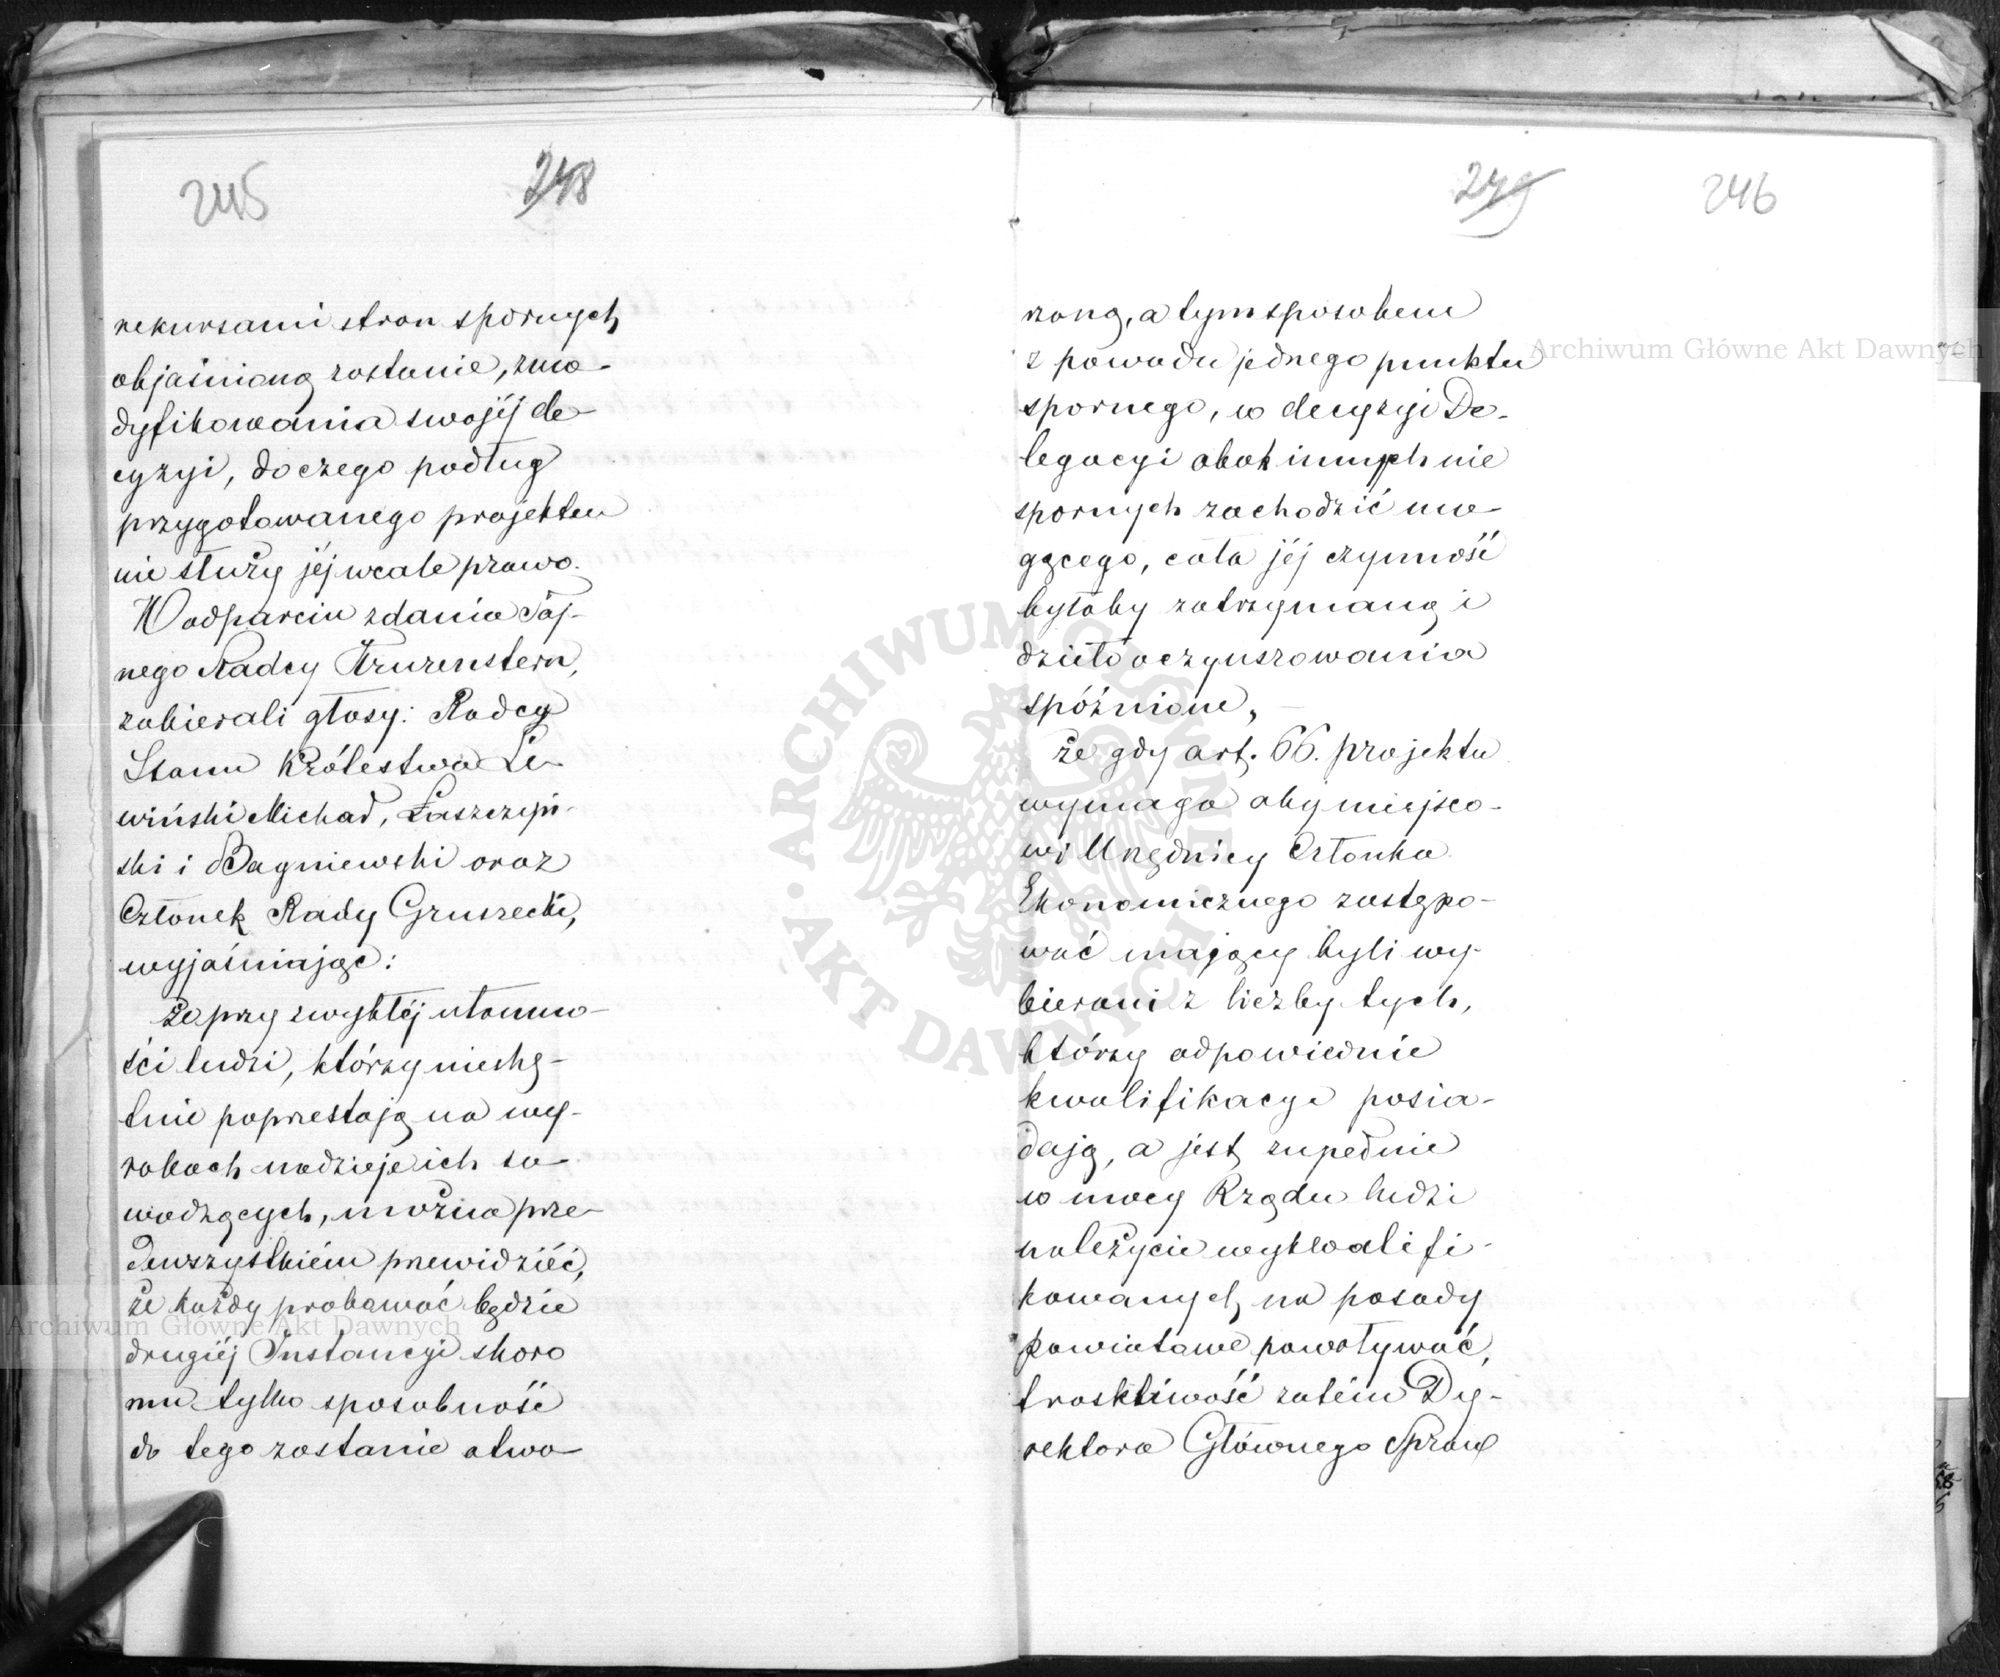 245
248
rekursami stron spornych
objaśnioną zostanie, zmo-
dyfikowania swojéj de-
cyzyi, do czego podług
przygotowanego projektu
nie służy jéj wcale prawo.
W odparciu zdania Taj-
nego Radcy Kruzenstern,
zabierali głosy: Radcy
Stanu Królestwa Le-
wiński Michał, Łaszczyń-
ski i Bagniewski oraz
Członek Rady Gruszecki,
wyjaśniając:
że przy zwykłéj ułomno-
ści ludzi, którzy niechę-
tnie poprzestają na wy-
rokach nadzieje ich za-
wodzących, można prze-
dewszystkiém przewidziéć,
że każdy probować będzie
drugiéj Instancyi skoro
mu tylko sposobność
do tego zostanie otwo-
249
246
rzoną, a tym sposobem
z powodu jednego punktu
spornego, w decyzyi De-
legacyi obok innych nie
spornych zachodzić mo-
gącego, cała jéj czynność
byłaby zatrzymaną i
dzieło oczynszowania
spóźnione,
że gdy art. 66. projektu
wymaga aby miejsco-
wi Urzędnicy Członka
Ekonomicznego zastępo-
wać mający byli wy-
bierani z liczby tych,
którzy odpowiednie
kwalifikacye posia-
dają, a jest zupełnie
w mocy Rządu ludzi
należycie wykwalifi-
kowanych na posady
powiatowe powoływać,
troskliwość zatém Dy-
rektora Głównego Spraw
Archiwum Główne Akt Dawnych
Archiwum Główne Akt Dawnych
ARCHIWUM GŁÓWNE AKT DAWNYCH